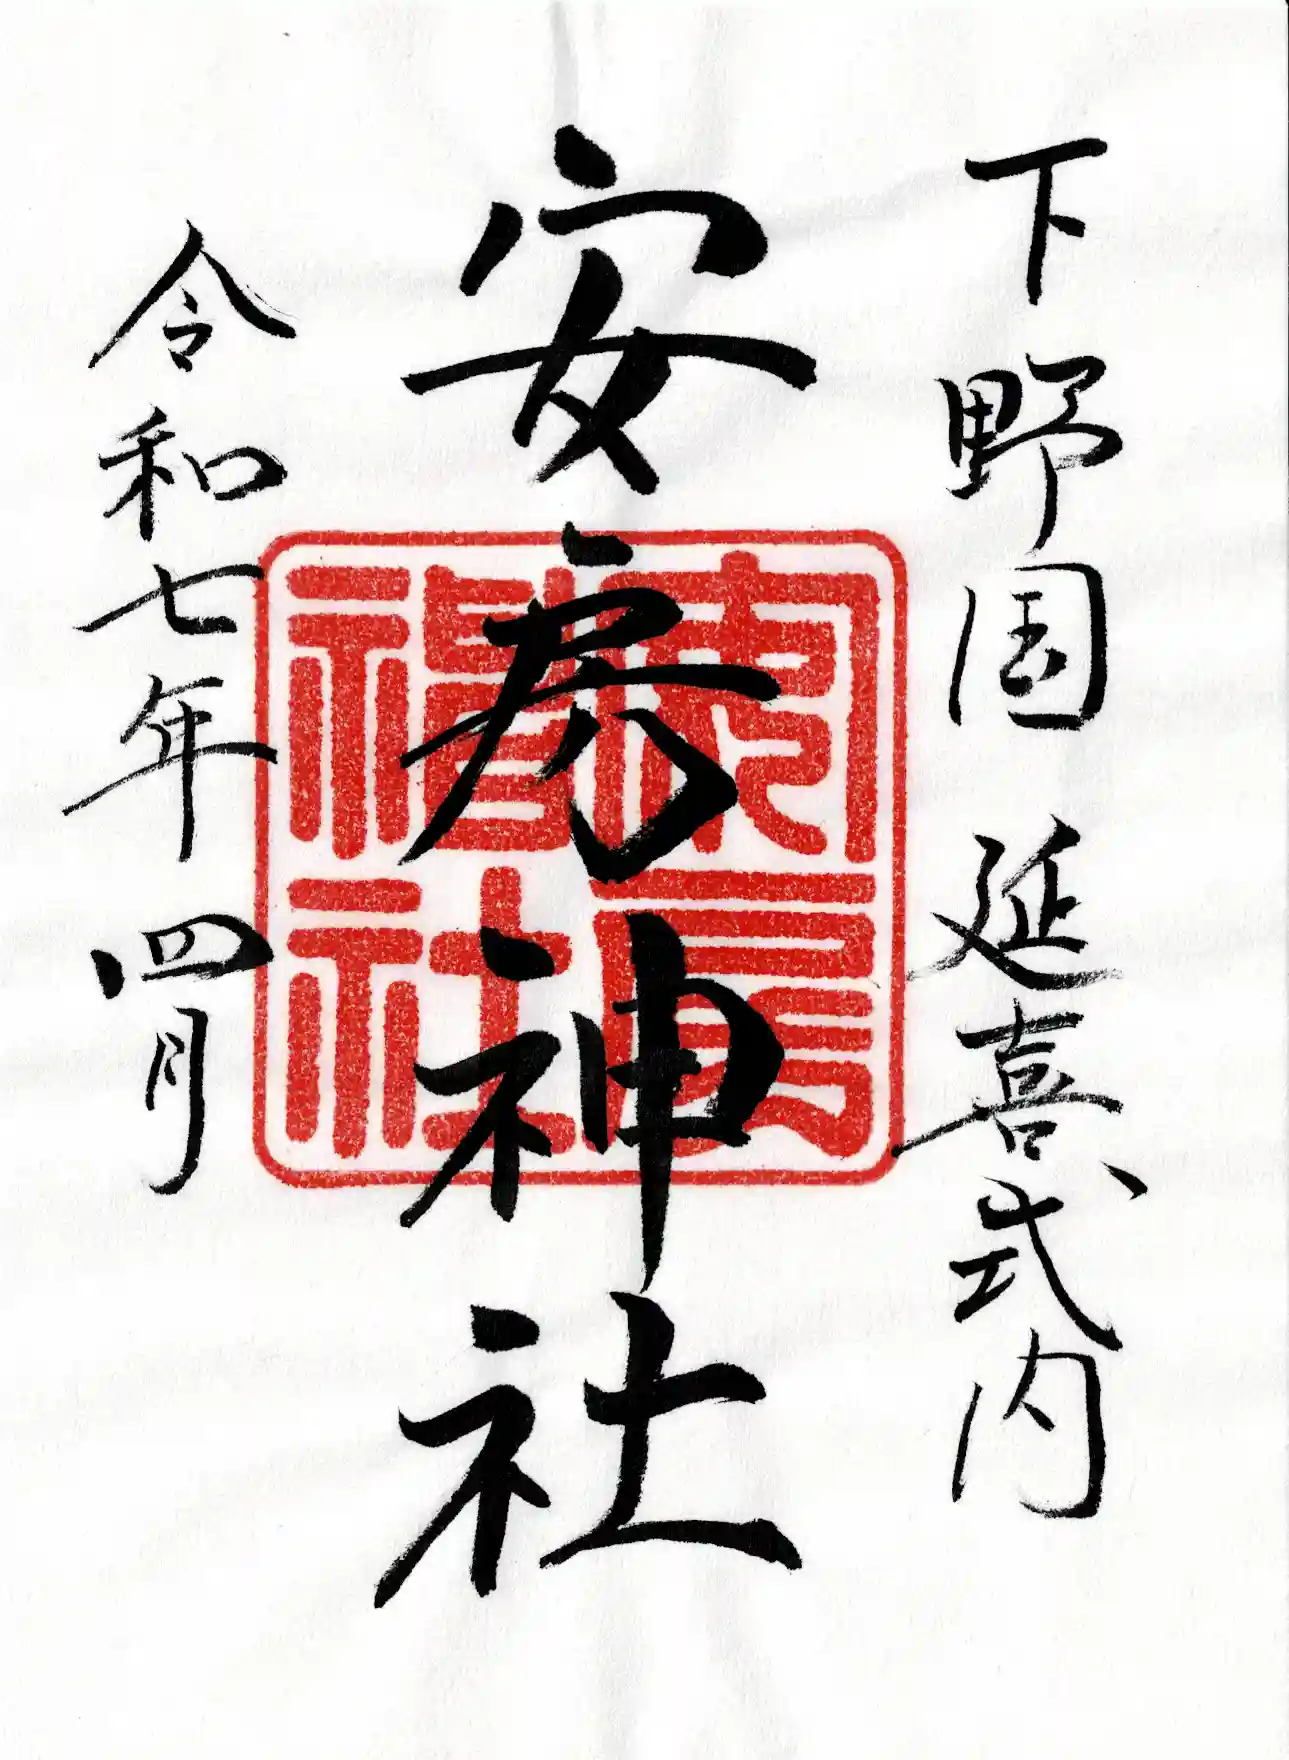 下野国 延喜式内
安房神社
令和七年四月
安房神社